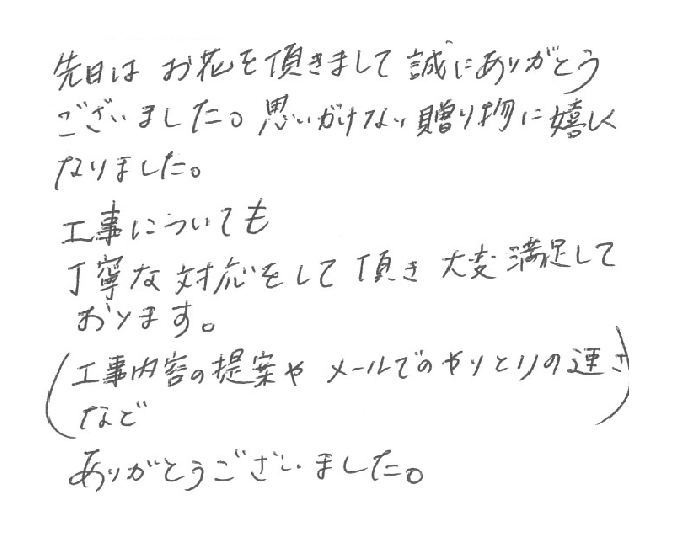 先日は お花を頂きまして 誠にありがとう
ございました。思いがけない贈り物に嬉しく
なりました。
工事についても
丁寧な対応をして頂き 大変満足して
おります。
(工事内容の提案や メールでのやりとりの速さ
など)
ありがとうございました。